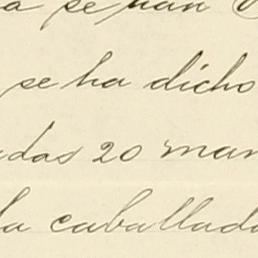 a se han
se ha dicho
adas 20 man
la caballada